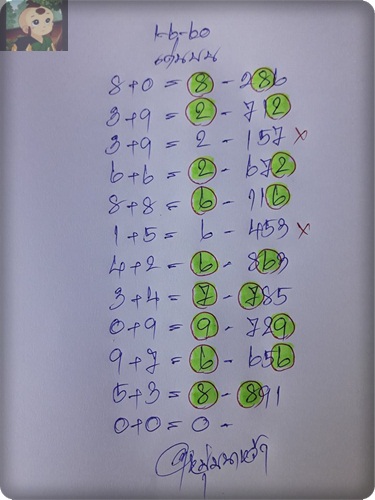 1-6-60
เด่นบน
8+0 = 8 - 286
3+9 = 2 - 712
3+9 = 2 - 157 ×
6+6 = 2 - 672
8+8 = 6 - 116
1+5 = 6 - 453 ×
4+2 = 6 - 863
3+4 = 7 - 785
0+9 = 9 - 729
9+7 = 6 - 656
5+3 = 8 - 891
0+0 = 0 -